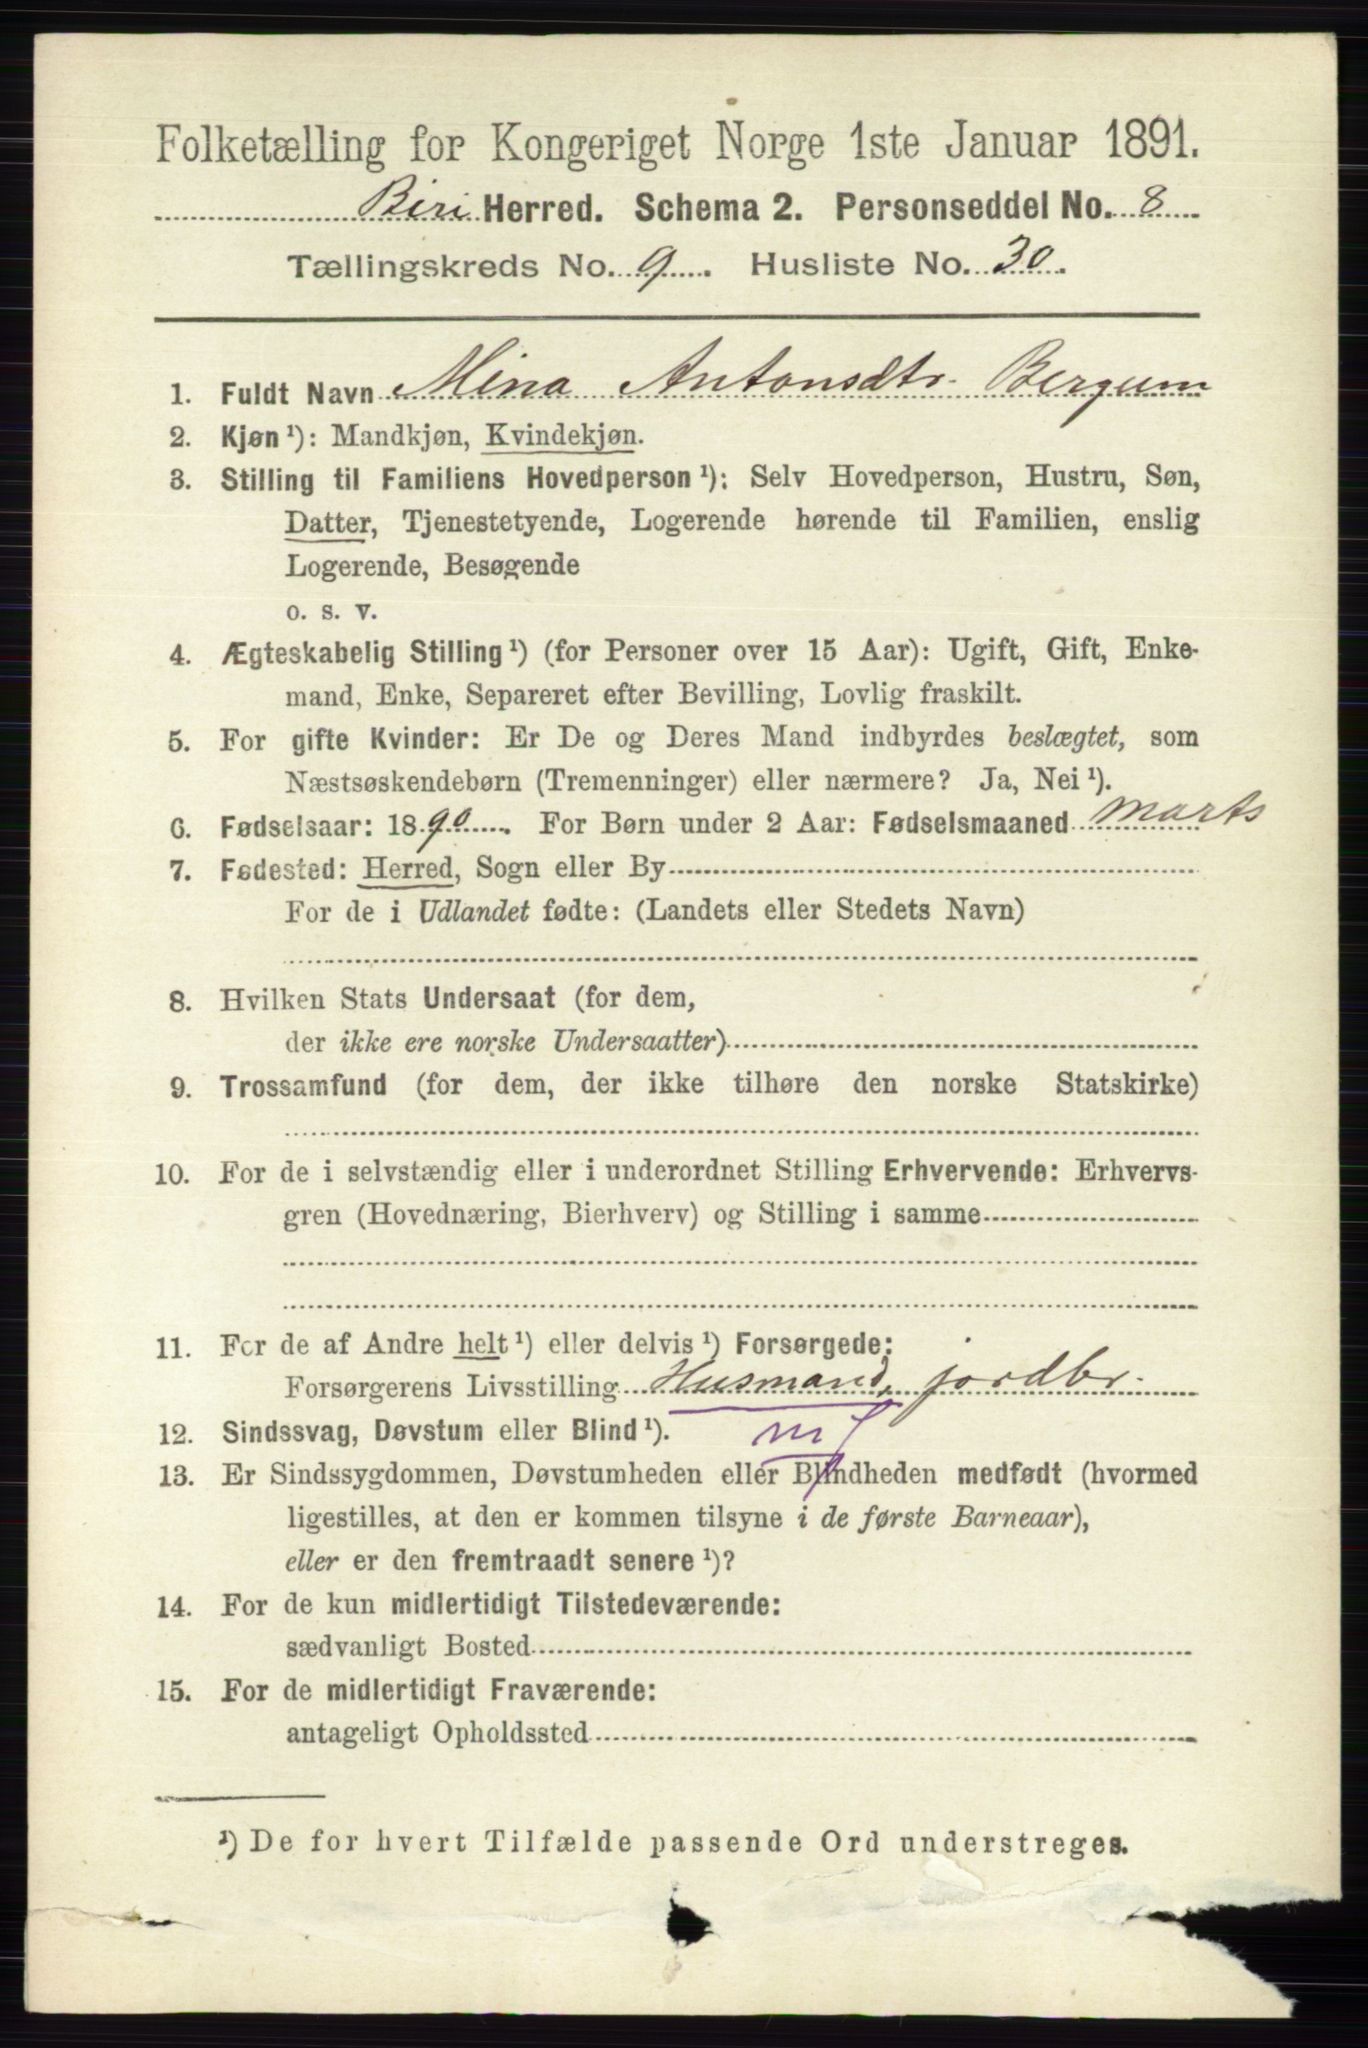 Folketælling for Kongeriget Norge 1ste Januar 1891.
Biri Herred. Schema 2. Personseddel No. 8
Tællingskreds No. 9. Husliste No. 30.
1. Fuldt Navn Mina Antonsdtr. Bergum
2. Kjøn ¹): Mandkjøn, Kvindekjøn.
3. Stilling til Familiens Hovedperson ¹): Selv Hovedperson, Hustru, Søn,
Datter, Tjenestetyende, Logerende hørende til Familien, enslig
Logerende, Besøgende
o. s. v.
4. Ægteskabelig Stilling ¹) (for Personer over 15 Aar): Ugift, Gift, Enke-
mand, Enke, Separeret efter Bevilling, Lovlig fraskilt.
5. For gifte Kvinder: Er De og Deres Mand indbyrdes beslægtet, som
Næstsøskendebørn (Tremenninger) eller nærmere? Ja, Nei ¹).
6. Fødselsaar: 1890. For Børn under 2 Aar: Fødselsmaaned Marts
7. Fødested: Herred, Sogn eller By
For de i Udlandet fødte: (Landets eller Stedets Navn)
8. Hvilken Stats Undersaat (for dem,
der ikke ere norske Undersaatter)
9. Trossamfund (for dem, der ikke tilhøre den norske Statskirke)
10. For de i selvstændig eller i underordnet Stilling Erhvervende: Erhvervs-
gren (Hovednæring, Bierhverv) og Stilling i samme
11. For de af Andre helt ¹) eller delvis ¹) Forsørgede:
Forsørgerens Livsstilling Husmand, jordbr.
12. Sindssvag, Døvstum eller Blind ¹).
13. Er Sindssygdommen, Døvstumheden eller Blindheden medfødt (hvormed
ligestilles, at den er kommen tilsyne i de første Barneaar),
eller er den fremtraadt senere ¹)?
14. For de kun midlertidigt Tilstedeværende:
sædvanligt Bosted
15. For de midlertidigt Fraværende:
antageligt Opholdssted
¹) De for hvert Tilfælde passende Ord understreges.